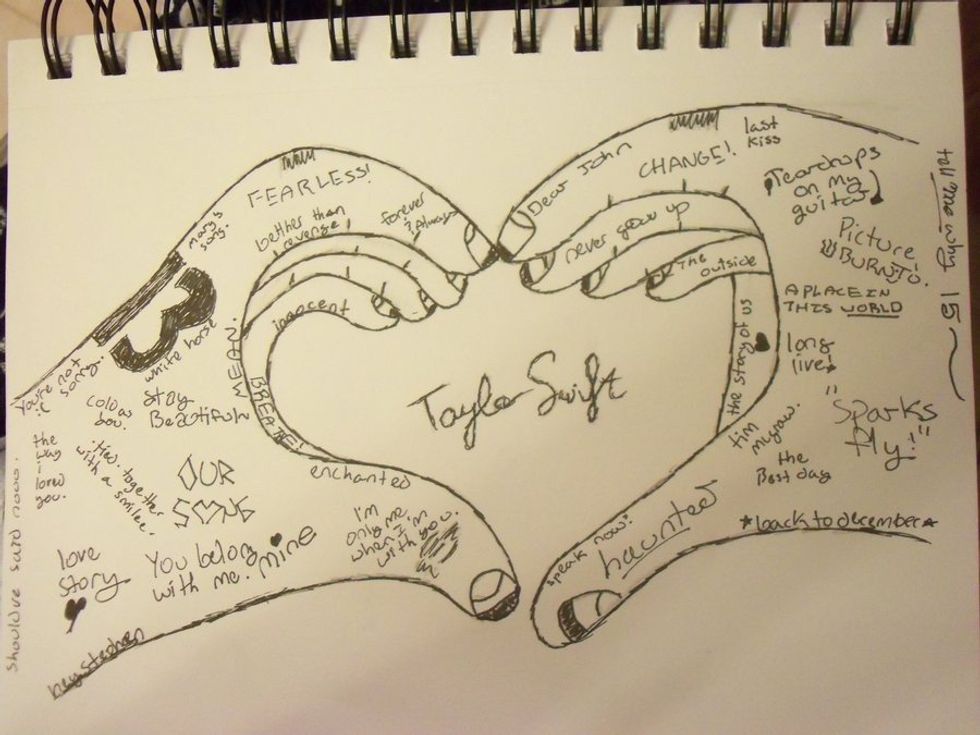 FEARLESS!
Mary's
song.
betther than
revenge
forever
& Always
innocent
Dear John
CHANGE!
last
kiss
never grow up
The outside
Teardrops
on my
guitar
Picture
BURNTO!
A PLACE IN
THIS WORLD
tell me why
15
long
live!
the story of us
"Sparks
fly!"
tim
mcgraw.
the
Best day
*back to december*
haunted
speak now!
Taylor Swift
13
white horse
MEAN!
BREATHE!
You're not
sorry.
cold as
you.
Stay
Beautiful
the
way
i
loved
you.
together
with a smilee
OUR
SONG
enchanted
I'm
only me
when I'm
with you.
love
story
You belong
with me.
mine
hey stephen
should've said nooo.